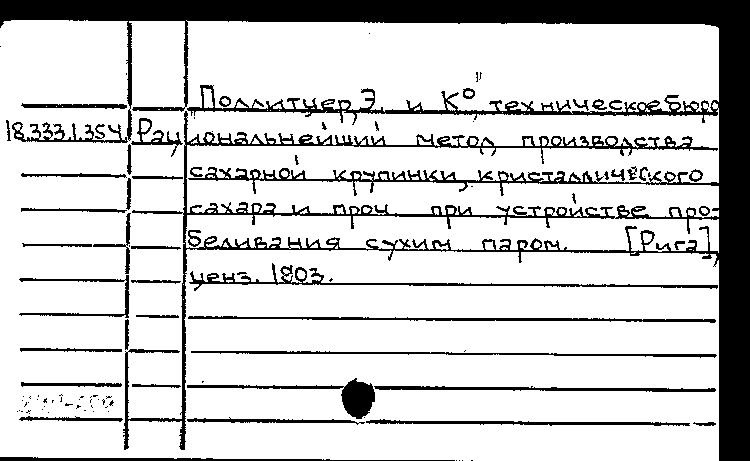 "Поллитцер, Э. и К°", техническое бюро
18.333.1.354. Рациональнейший метод производства
сахарной крупинки, кристаллического
сахара и проч. при устройстве про-
беливания сухим паром. [Рига],
ценз. 1803.